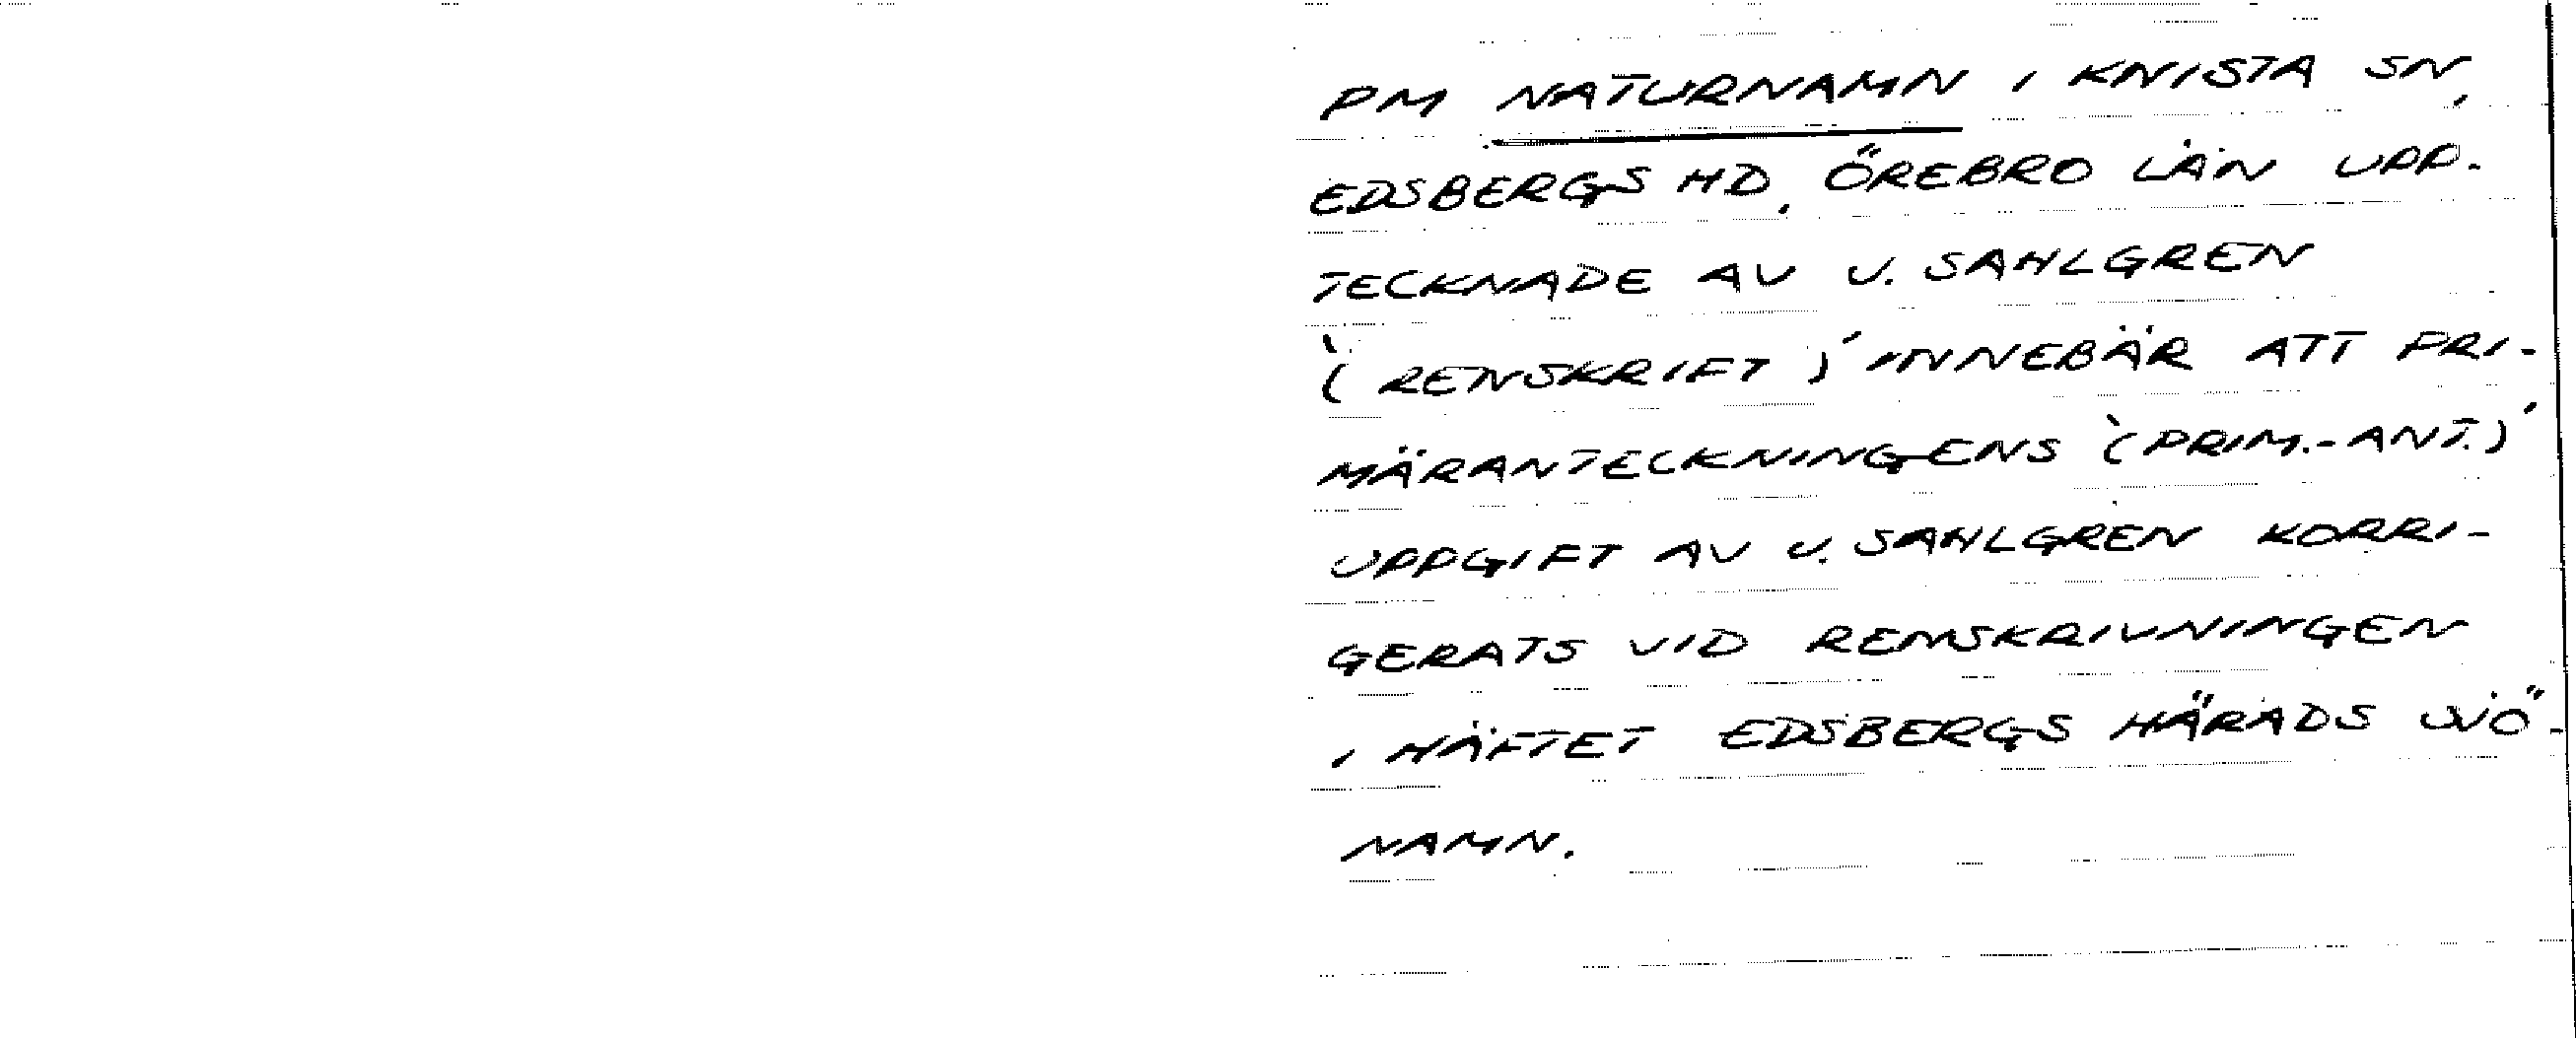 PM NATURNAMN I KNISTA SN,
EDSBERGS HD, ÖREBRO LÄN UPP-
TECKNADE AV J. SAHLGREN
`( RENSKRIFT )´ INNEBÄR ATT PRI-
MÄRANTECKNINGENS `(PRIM.-ANT.)´
UPPGIFT AV J. SAHLGREN KORRI-
GERATS VID RENSKRIVNINGEN
I HÄFTET EDSBERGS HÄRADS SJÖ-
NAMN.